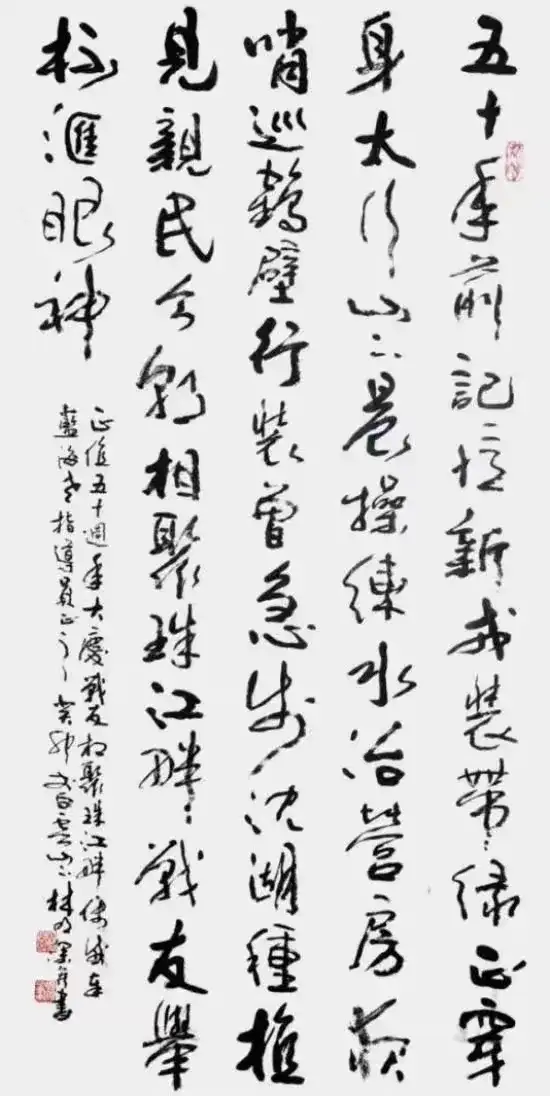 五十年前記憶新戎裝帶绿正穿
身太行山下晨操練水冶營房夜
哨巡鶴壁行裝曾急步沈湖種植
見親民今朝相聚珠江畔戰友舉
杯滙眼神
正值五十週年大慶戰友相聚珠江畔
藍海老指導員正之 癸卯 白雲山下林 書